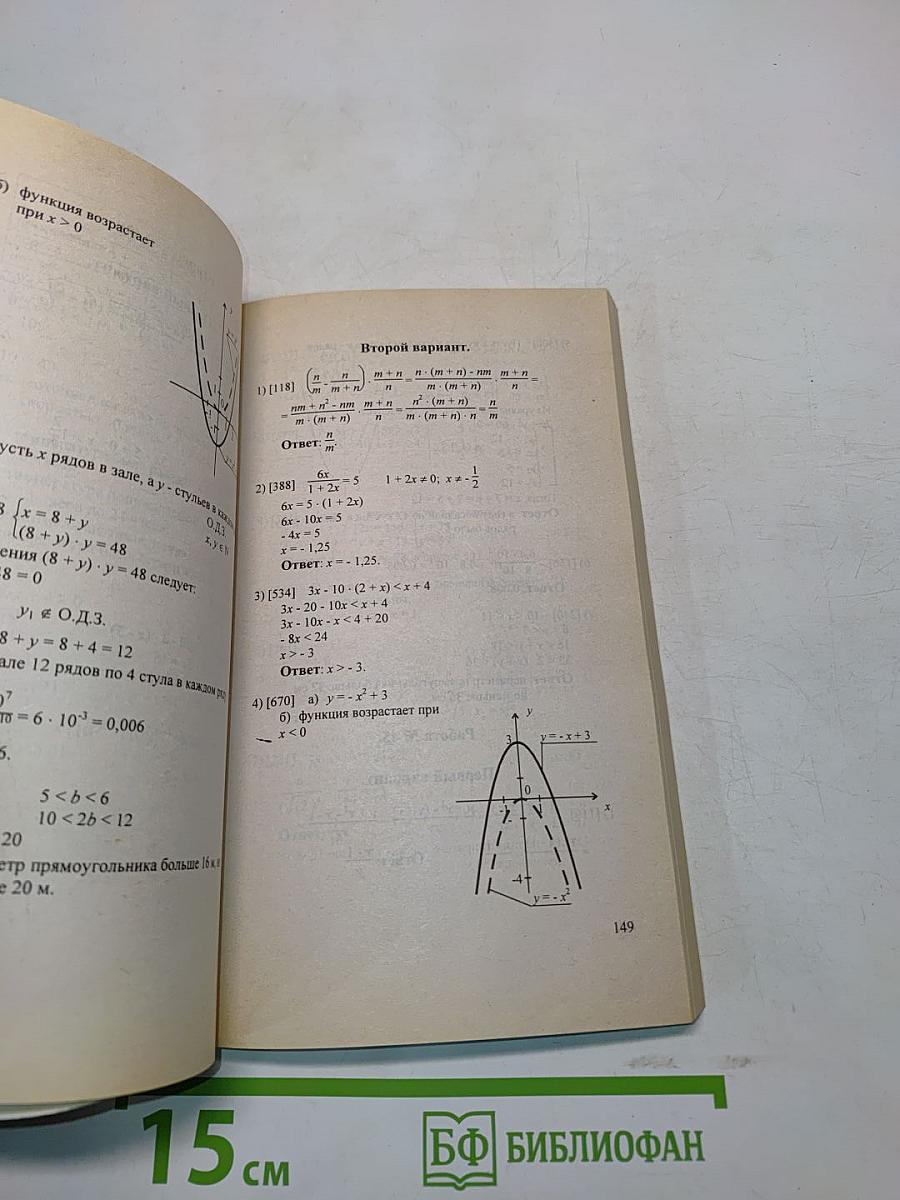 б) функция возрастает
при x > 0
усть x рядов в зале, а y - стульев в каждом
О.Д.З.
{x = 8 + y
x, y ∈ N
{(8 + y) · y = 48
ения (8 + y) · y = 48 следует:
48 = 0
y₁ ∉ О.Д.З.
8 + y = 8 + 4 = 12
але 12 рядов по 4 стула в каждом ряду
= 6 · 10⁻³ = 0,006
5 < b < 6
10 < 2b < 12
20
етр прямоугольника больше 16 м, и
е 20 м.
Второй вариант.
1) [118] (n/m - n/(m + n)) · (m + n)/n = (n · (m + n) - nm)/(m · (m + n)) · (m + n)/n =
= (nm + n² - nm)/(m · (m + n)) · (m + n)/n = (n² · (m + n))/(m · (m + n) · n) = n/m
Ответ: n/m.
2) [388] 6x/(1 + 2x) = 5 1 + 2x ≠ 0; x ≠ - 1/2
6x = 5 · (1 + 2x)
6x - 10x = 5
- 4x = 5
x = - 1,25
Ответ: x = - 1,25.
3) [534] 3x - 10 · (2 + x) < x + 4
3x - 20 - 10x < x + 4
3x - 10x - x < 4 + 20
- 8x < 24
x > - 3
Ответ: x > - 3.
4) [670] а) y = - x² + 3
б) функция возрастает при
x < 0
y
3
y = - x + 3
0
x
-1
1
-4
y = - x²
149
15 см
БФ БИБЛИОФАН